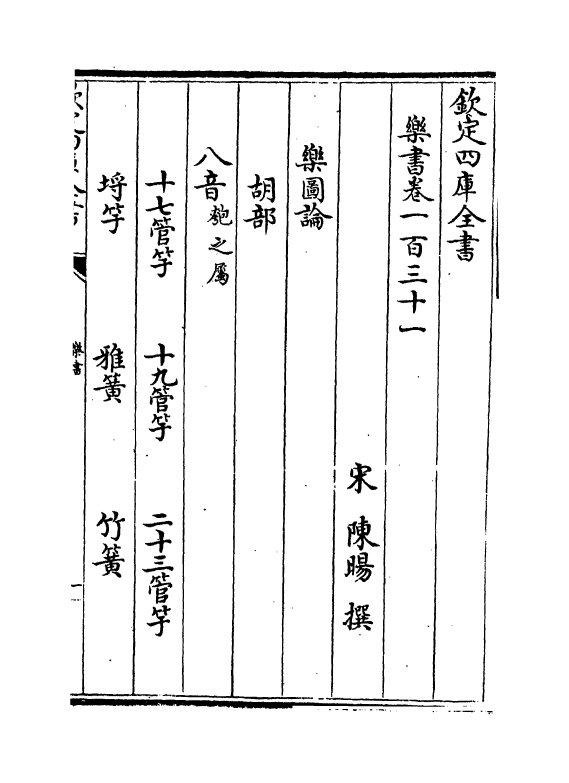 欽定四庫全書
樂書卷一百三十一
宋 陳暘 撰
樂圖論
胡部
八音匏之屬
十七管竽 十九管竽 二十三管竽
埓竽 雅簧 竹簧
樂書
一